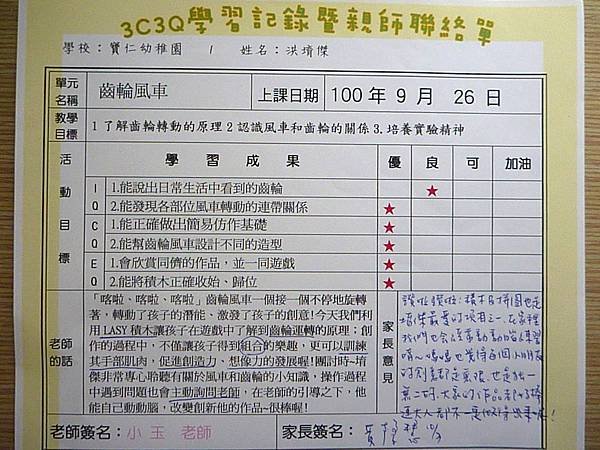 3C3Q學習記錄暨親師聯絡單
學校：寶仁幼稚園 / 姓名：洪堉傑
單元名稱 齒輪風車 上課日期 100 年 9 月 26 日
教學目標 1 了解齒輪轉動的原理 2 認識風車和齒輪的關係 3.培養實驗精神
活動目標 學習成果 優 良 可 加油
IQ 1.能說出日常生活中看到的齒輪 ★
2.能發現各部位風車轉動的連帶關係 ★
CQ 1.能正確做出簡易仿作基礎 ★
2.能幫齒輪風車設計不同的造型 ★
EQ 1.會欣賞同儕的作品，並一同遊戲 ★
2.能將積木正確收始、歸位 ★
老師的話
「喀啦、喀啦、喀啦」齒輪風車一個接一個不停地旋轉
著，轉動了孩子的潛能、激發了孩子的創意!今天我們利
用 LASY 積木讓孩子在遊戲中了解到齒輪運轉的原理；創
作的過程中，不僅讓孩子得到組合的樂趣，更可以訓練
其手部肌肉，促進創造力，想像力的發展喔!團討時~堉
傑非常專心聆聽有關於風車和齒輪的小知識，操作過程
中遇到問題也會主動詢問老師，在老師的引導之下，他
能自己動動腦，改變創新他的作品~很棒喔!
家長意見
積木與拼圖也是
堉傑最愛的項目之一，在家裡
我們也會
老師簽名：小 玉 老師 家長簽名：